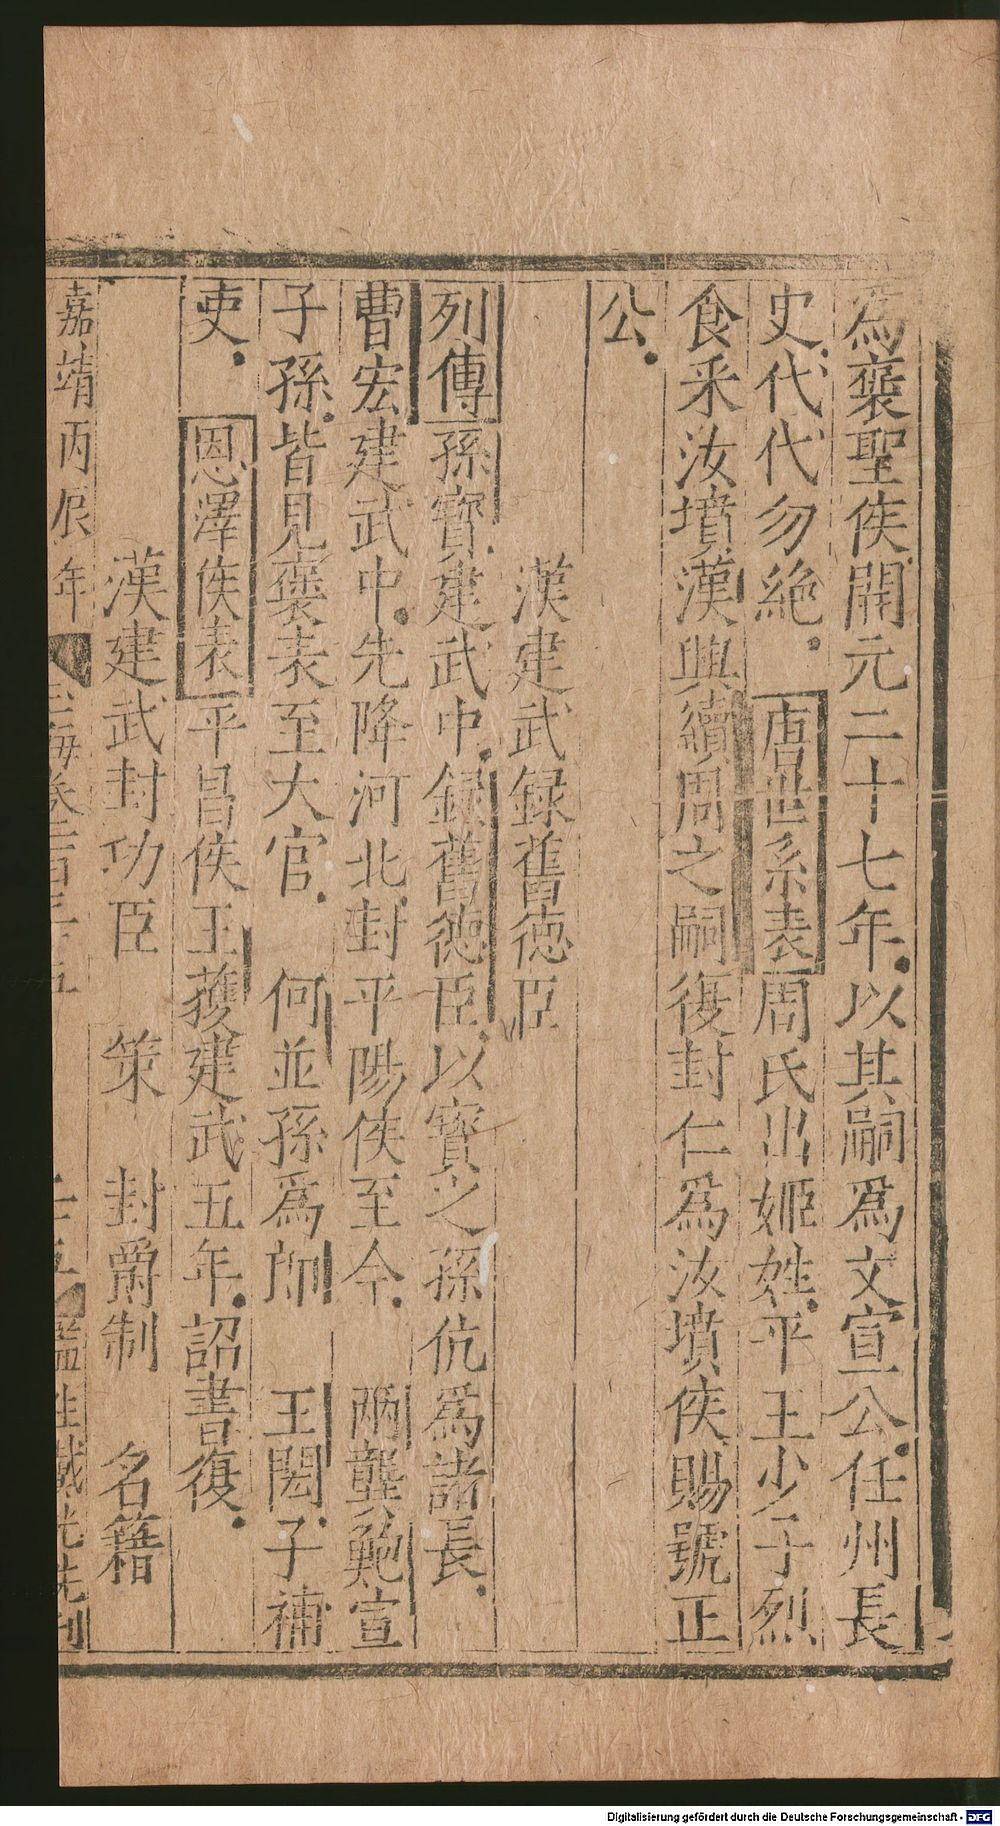 為襃聖侯開元二十七年以其嗣爲文宣公任州長
史代代勿絶　唐世系表周氏出姬姓平王少子烈
食采汝墳漢興續周之嗣復封仁爲汝墳侯賜號正
公
漢建武録舊徳臣
列傳孫寳建武中録舊徳臣以寳之孫伉爲諸長
曹宏建武中先降河北封平陽侯至今　兩龔鮑宣
子孫皆見襃表至大官　何並孫爲郎　王閎子補
吏　恩澤侯表平昌侯王䕶建武五年詔書復
漢建武封功臣　策　封爵制　名籍
嘉靖丙辰年　海卷一百三十五　監生戴先刊
Digitalisierung gefördert durch die Deutsche Forschungsgemeinschaft - DFG